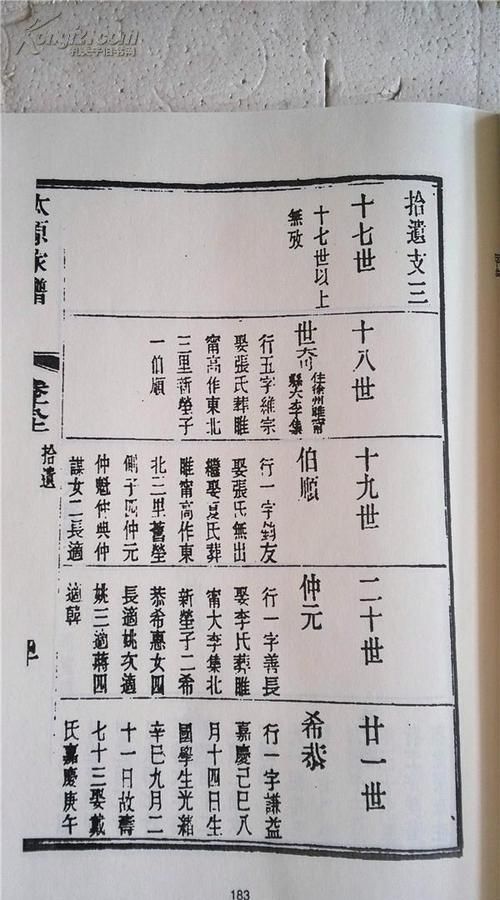 Kongfz.com
孔夫子旧书网
拾遺支三
十七世
十七世以上
無攷
十八世
世奇
住徐州睢甯
縣大李集
行五字維宗
娶張氏葬睢
甯高作東北
三里新塋子
一伯順
十九世
伯順
行一字 友
娶張氏無出
繼娶夏氏葬
睢甯高作東
北三里舊塋
子 仲元
仲魁仲典仲
謀女二長適
二十世
仲元
行一字善長
娶李氏葬睢
甯大李集北
新塋子二希
恭希惠女四
長適姚次適
姚三適蔣四
適韓
廿一世
希恭
行一字謙益
嘉慶己巳八
月十四日生
國學生光緒
辛巳九月二
十一日故壽
七十三娶戴
氏嘉慶庚午
太原家譜
拾遺
183